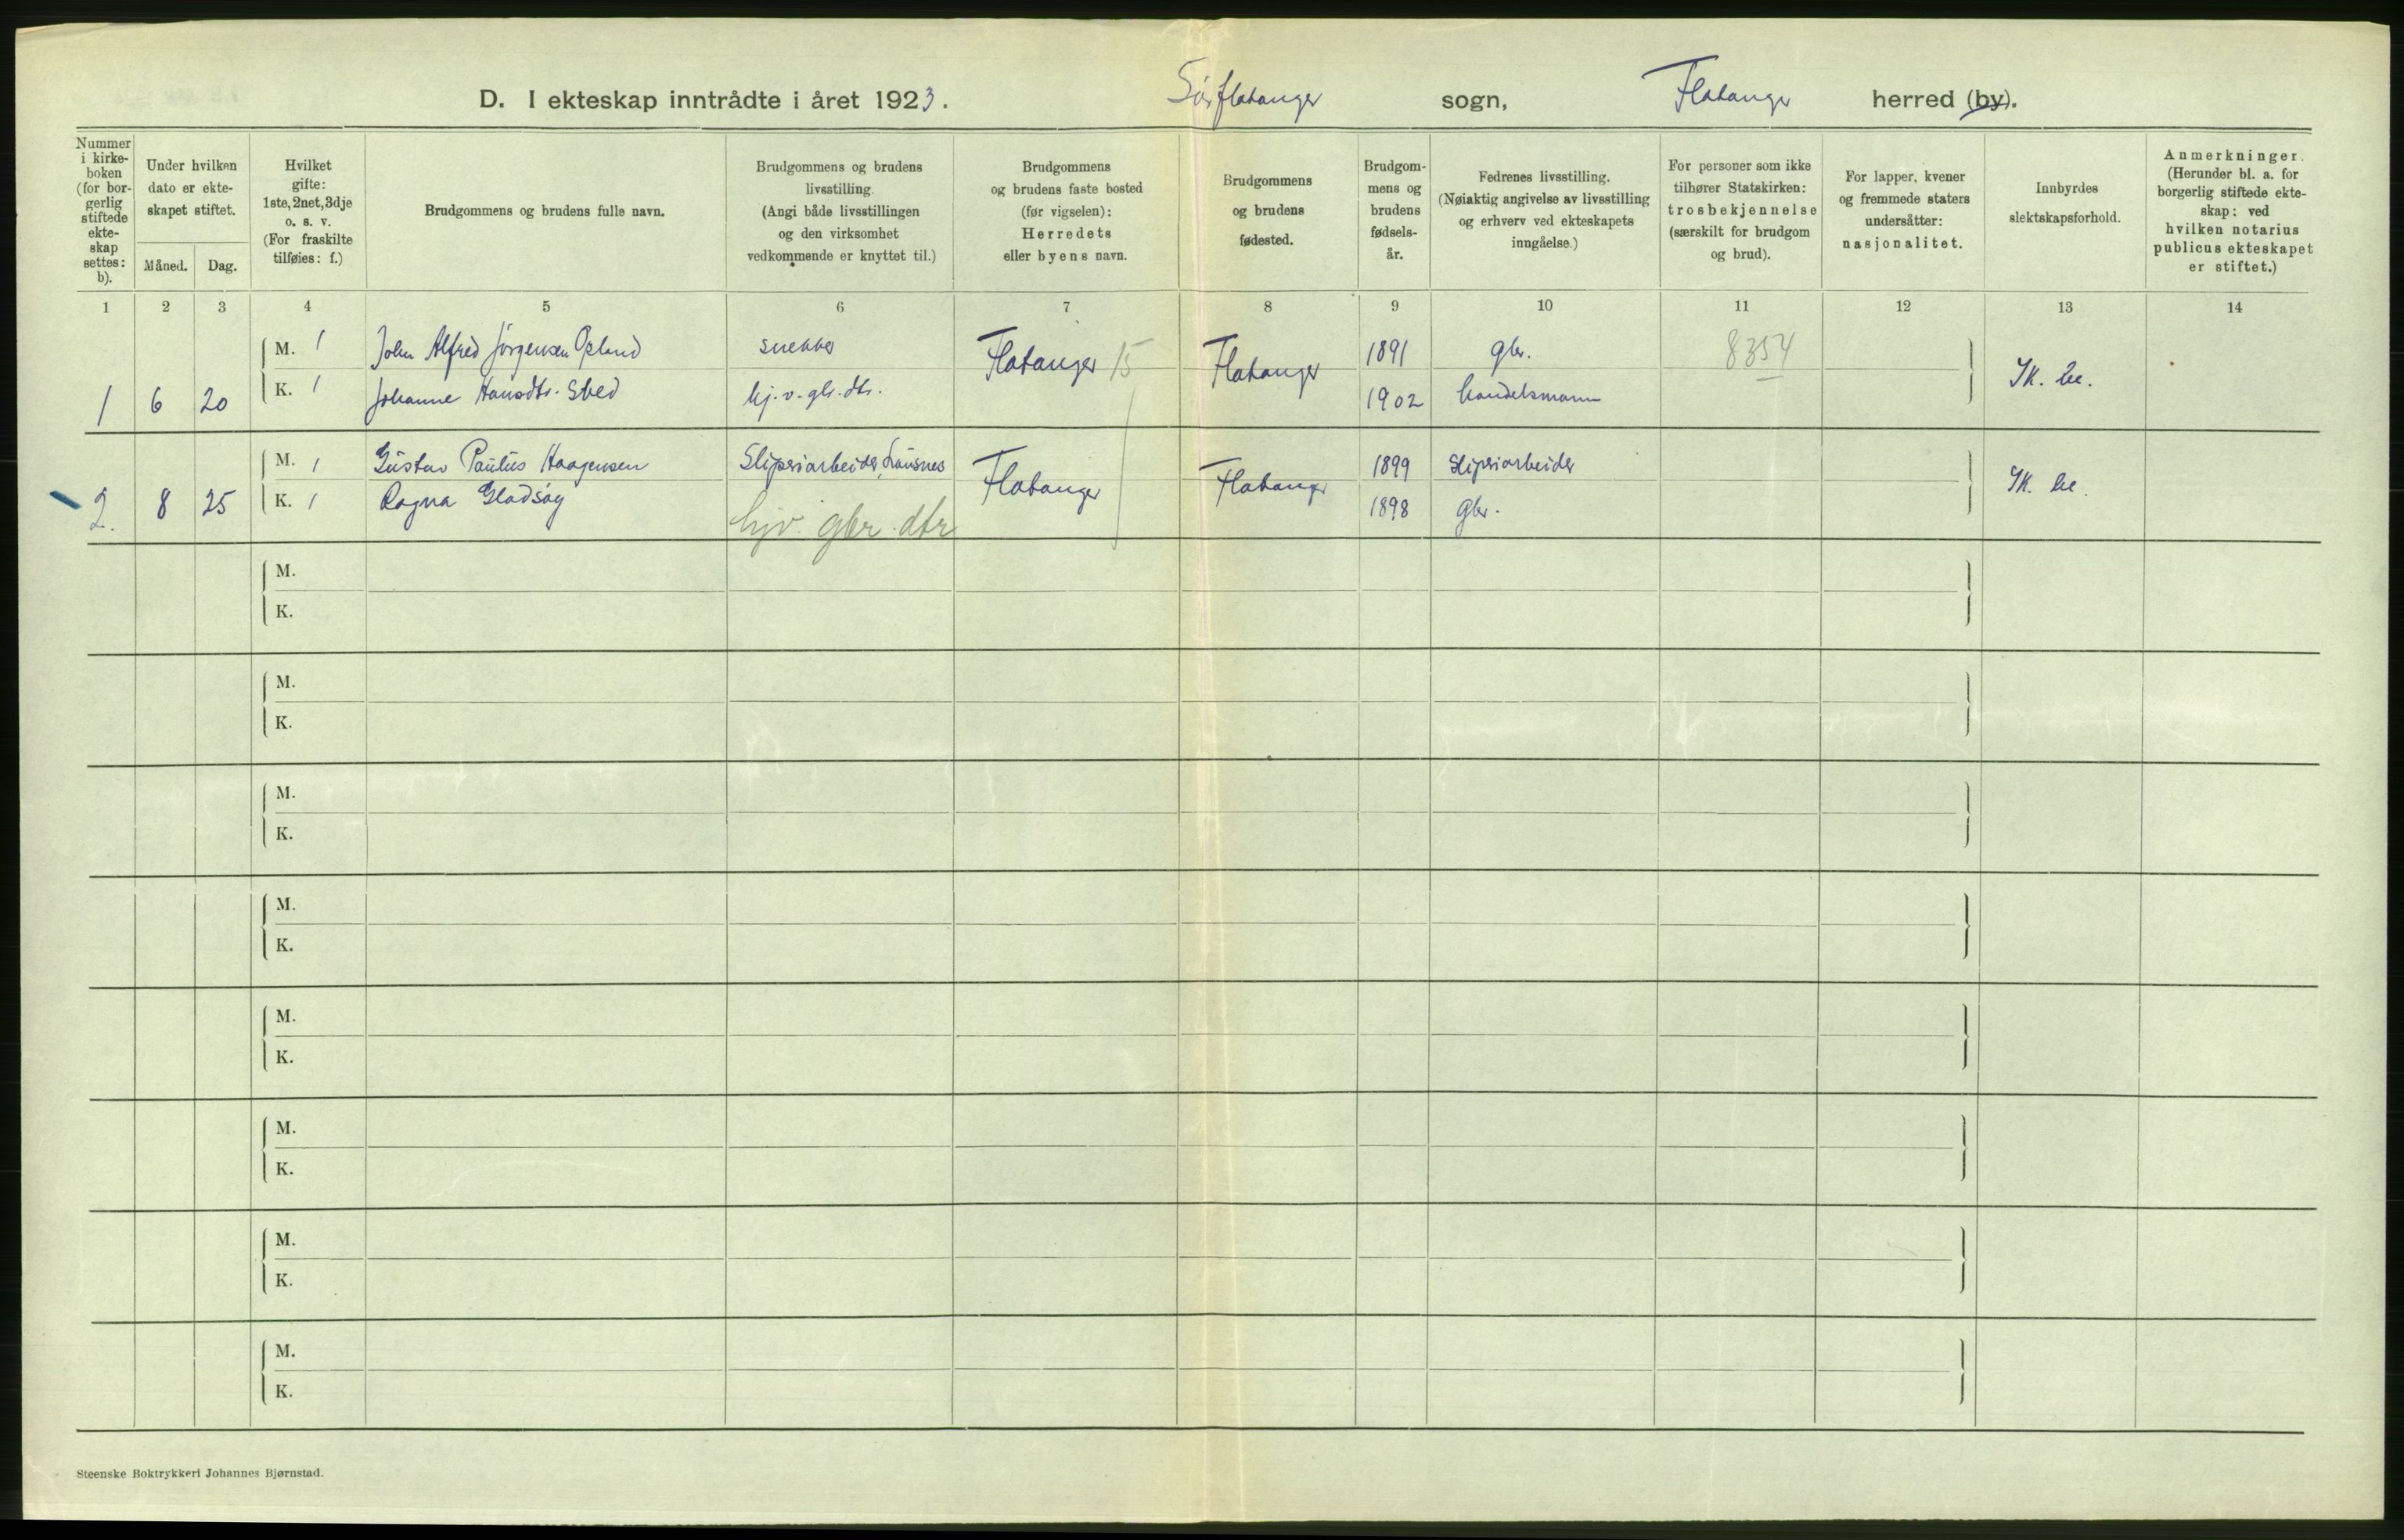 D. I ekteskap inntrådte i året 1923. Sörflatanger sogn, Flatanger herred (by).
Nummer i kirke-boken (for bor-gerlig stiftede ekte-skap settes: b).
Under hvilken dato er ekte-skapet stiftet.
Måned. Dag.
Hvilket gifte: 1ste, 2net, 3dje o. s. v. (For fraskilte tilføies: f.)
Brudgommens og brudens fulle navn.
Brudgommens og brudens livsstilling. (Angi både livsstillingen og den virksomhet vedkommende er knyttet til.)
Brudgommens og brudens faste bosted (før vigselen): Herredets eller byens navn.
Brudgommens og brudens fødested.
Brudgom-mens og brudens fødsels-år.
Fedrenes livsstilling. (Nøiaktig angivelse av livsstilling og erhverv ved ekteskapets inngåelse.)
For personer som ikke tilhører Statskirken: trosbekjennelse (særskilt for brudgom og brud).
For lapper, kvener og fremmede staters undersåtter: nasjonalitet.
Innbyrdes slektskapsforhold.
Anmerkninger. (Herunder bl. a. for borgerlig stiftede ekte-skap: ved hvilken notarius publicus ekteskapet er stiftet.)
1 2 3 4 5 6 7 8 9 10 11 12 13 14
M. 1 John Alfred Jörgensen Opland snekker Flatanger 15 Flatanger 1891 gbr. 8354
1 6 20 K. 1 Johanne Hansdtr. Sved hj. v. gbr. dtr. 1902 handelsmann
M. 1 Gustav Paulus Haagensen Sliperiarbeider, Lausnes Flatanger Flatanger 1899 Sliperiarbeider
2. 8 25 K. 1 Ragna Gladsöy hjv. gbr. dtr 1898 gbr.
M.
K.
M.
K.
M.
K.
M.
K.
M.
K.
M.
K.
M.
K.
M.
K.
Steenske Boktrykkeri Johannes Bjørnstad.